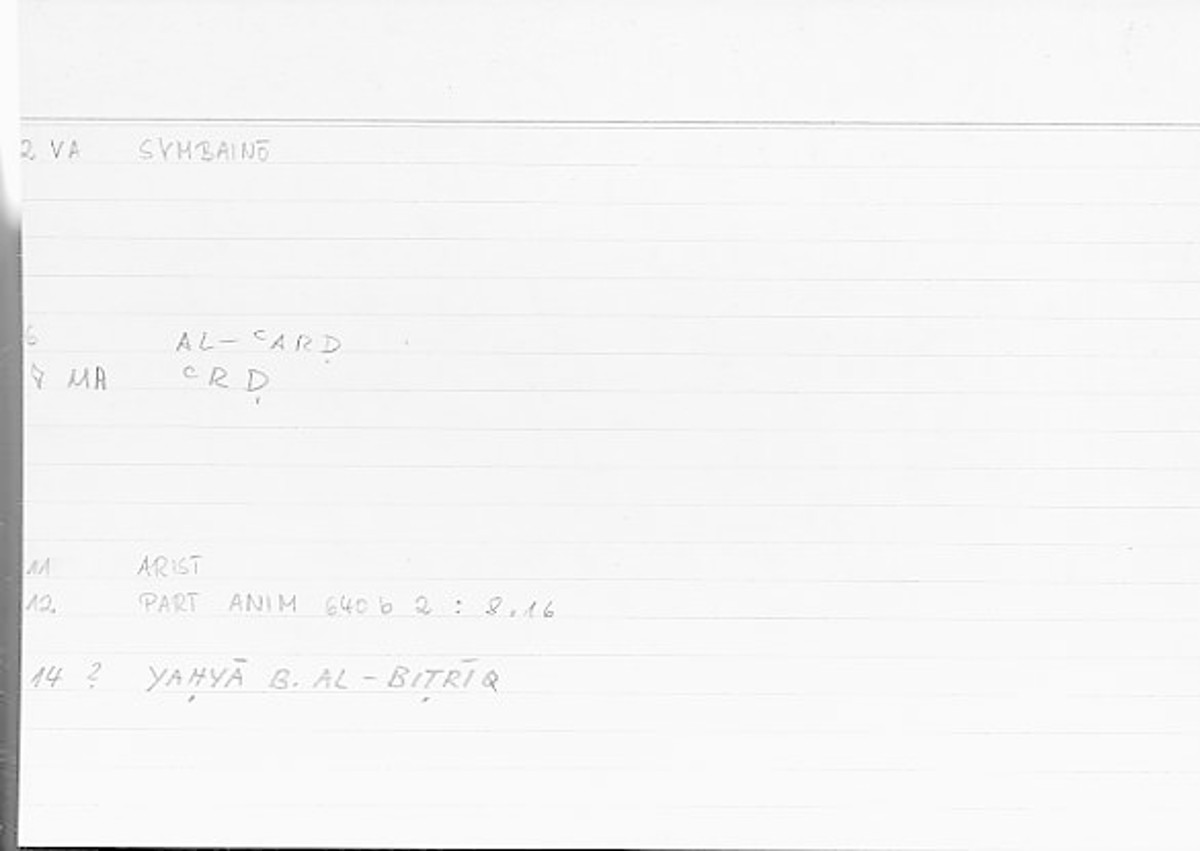 2 VA SYMBAINŌ
6 AL-ʿARḌ
7 MA ʿRḌ
11 ARIST
12. PART ANIM 640 b 2 : 8.16
14 ? YAḤYĀ B. AL-BIṬRĪQ